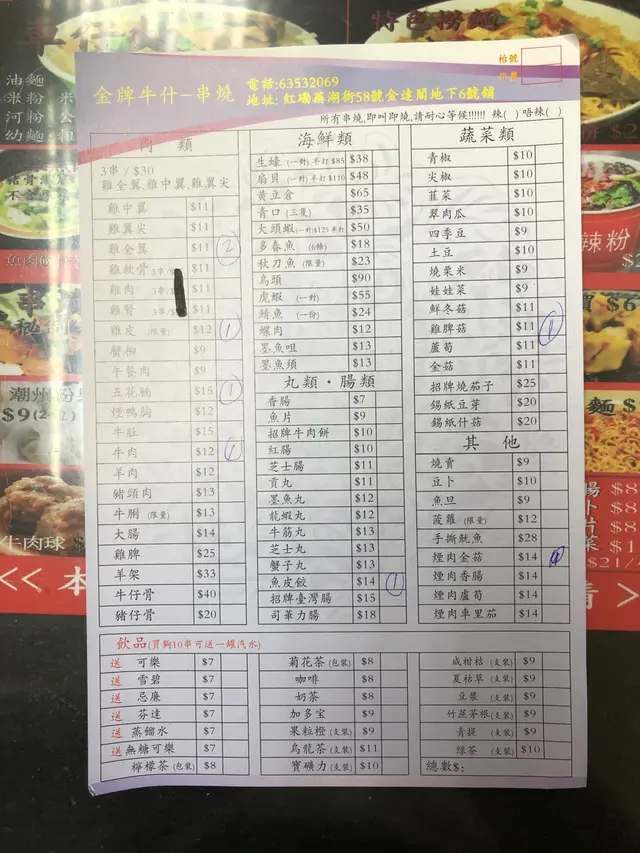 特色撈麵
油麵
米粉 米
河粉 公
幼麵 粗
金牌牛什–串燒
電話:63532069
地址: 紅磡蕪湖街58號金達閣地下6號舖
枱號
所有串燒,即叫即燒,請耐心等候!!!!!! 辣( ) 唔辣( )
肉 類
3串 / $30
雞全翼,雞中翼,雞翼尖
雞中翼 $11
雞翼尖 $11
雞全翼 $11 2
雞軟骨 3串/ $11
雞肉 3串/ $11
雞腎 3串/ $11
雞皮 (限量) $12 1
蟹柳 $9
午餐肉 $9
五花腩 $15 1
煙鴨胸 $12
牛肚 $15
牛肉 $12 1
羊肉 $12
豬頸肉 $13
牛脷 (限量) $13
大腸 $14
雞髀 $25
羊架 $33
牛仔骨 $40
豬仔骨 $20
海鮮類
生蠔 (一對) 半打 $85 $38
扇貝 (一對) 半打 $110 $48
黃立倉 $65
青口 (三隻) $35
大頭蝦 (一對) $125 半打 $50
多春魚 (6條) $18
秋刀魚 (限量) $23
烏頭 $90
虎蝦 (一對) $55
鯖魚 (一份) $24
螺肉 $12
墨魚咀 $13
墨魚須 $13
丸類·腸類
香腸 $7
魚片 $9
招牌牛肉餅 $10
紅腸 $10
芝士腸 $11
貢丸 $11
墨魚丸 $12
龍蝦丸 $12
牛筋丸 $13
芝士丸 $13
蟹子丸 $13
魚皮餃 $14 1
招牌臺灣腸 $15
司華力腸 $18
蔬菜類
青椒 $10
尖椒 $10
韮菜 $10
翠肉瓜 $10
四季豆 $9
土豆 $10
燒粟米 $9
娃娃菜 $9
鮮冬菇 $11
雞脾菇 $11 1
蘆筍 $11
金菇 $11
招牌燒茄子 $25
錫紙豆芽 $20
錫紙什菇 $20
其 他
燒賣 $9
豆卜 $10
魚旦 $9
菠蘿 (限量) $12
手撕魷魚 $28
煙肉金菇 $14
煙肉香腸 $14
煙肉蘆筍 $14
煙肉車里茄 $14
飲品(買夠10串可送一罐汽水)
送 可樂 $7
送 雪碧 $7
送 忌廉 $7
送 芬達 $7
送 蒸餾水 $7
送 無糖可樂 $7
檸檬茶 (包裝) $8
菊花茶 (包裝) $8
咖啡 $8
奶茶 $8
加多宝 $9
果粒橙 (支裝) $9
烏龍茶 (支裝) $11
寶礦力 (支裝) $10
咸柑桔 (支裝) $9
夏枯草 (支裝) $9
豆漿 (支裝) $9
竹蔗茅根 (支裝) $9
青提 (支裝) $9
綠茶 (支裝) $10
總數$:
辣粉
潮州粉
$9(2-位)
牛肉球 $
<< 本
麵 $